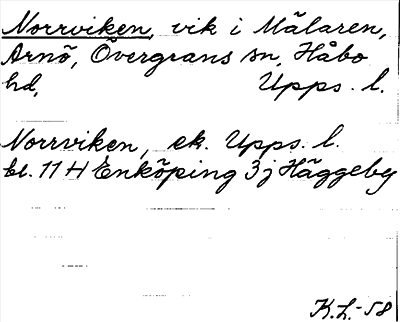 Norrviken, vik i Mälaren,
Arnö, Övergrans sn, Håbo
hd, Upps. l.
Norrviken, ek. Upps. l.
bl. 11 H Enköping 3 j Häggeby
K.L.-58